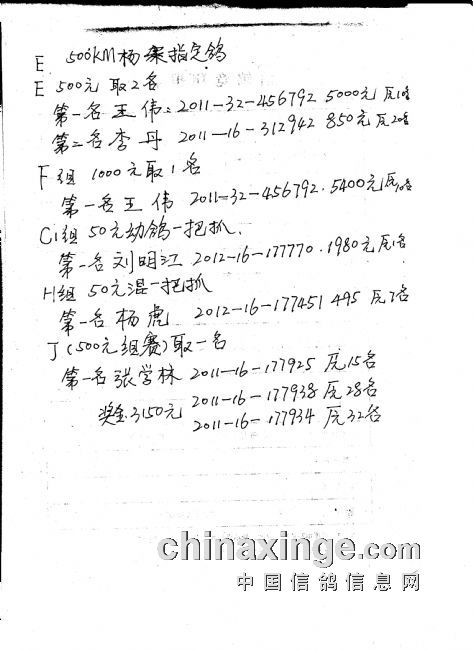 E 500KM杨架指定鸽
E 500元 取2名
第一名 王伟: 2011-32-456792 5000元 厐10名
第二名 李丹 2011-16-312942 850元 厐20名
F组 1000元取1名
第一名 王伟 2011-32-456792. 5400元 厐10名
C1组 50元幼鸽一把抓.
第一名 刘明江 2012-16-177770. 1980元 厐1名
H组 50元混一把抓
第一名 杨虎 2012-16-177451 495 厐7名
J(500元组赛)取一名
第一名 张学林 2011-16-177925 厐15名
奖金3150元 2011-16-177938 厐28名
2011-16-177934 厐32名
chinaxinge.com
中国信鸽信息网